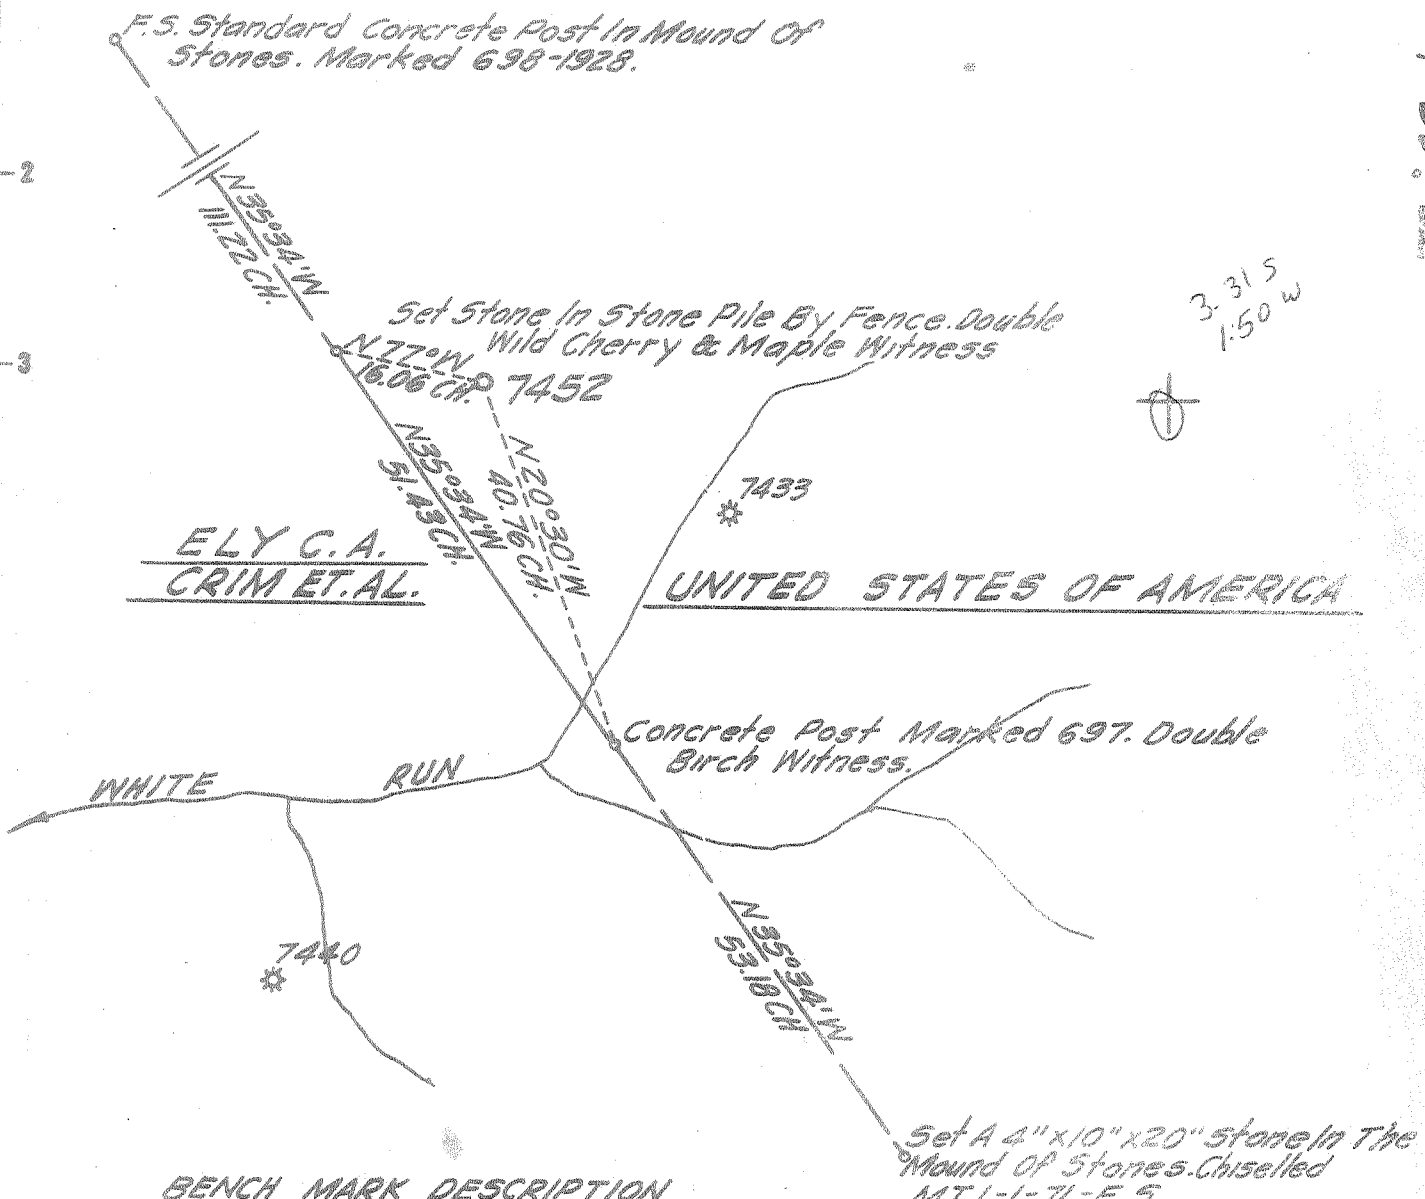 F.S. Standard Concrete Post In Mound Of
Stones. Marked 698-1928.
2
N35°34'W
111.22 CH.
3-31 S
1.50 W
Set Stone In Stone Pile By Fence. Double
Wild Cherry & Maple Witness
3
N 77° W
16.06 CH.
7452
N35°34'W
51.43 CH.
N 20°30'W
40.76 CH.
7433
ELY C. A.
CRIM ET. AL.
UNITED STATES OF AMERICA
Concrete Post Marked 697. Double
Birch Witness.
WHITE RUN
7440
N 35°34'W
53.18 CH
Set A 4"x10"x20" Stone In The
Mound Of Stones. Chiselled
BENCH MARK DESCRIPTION